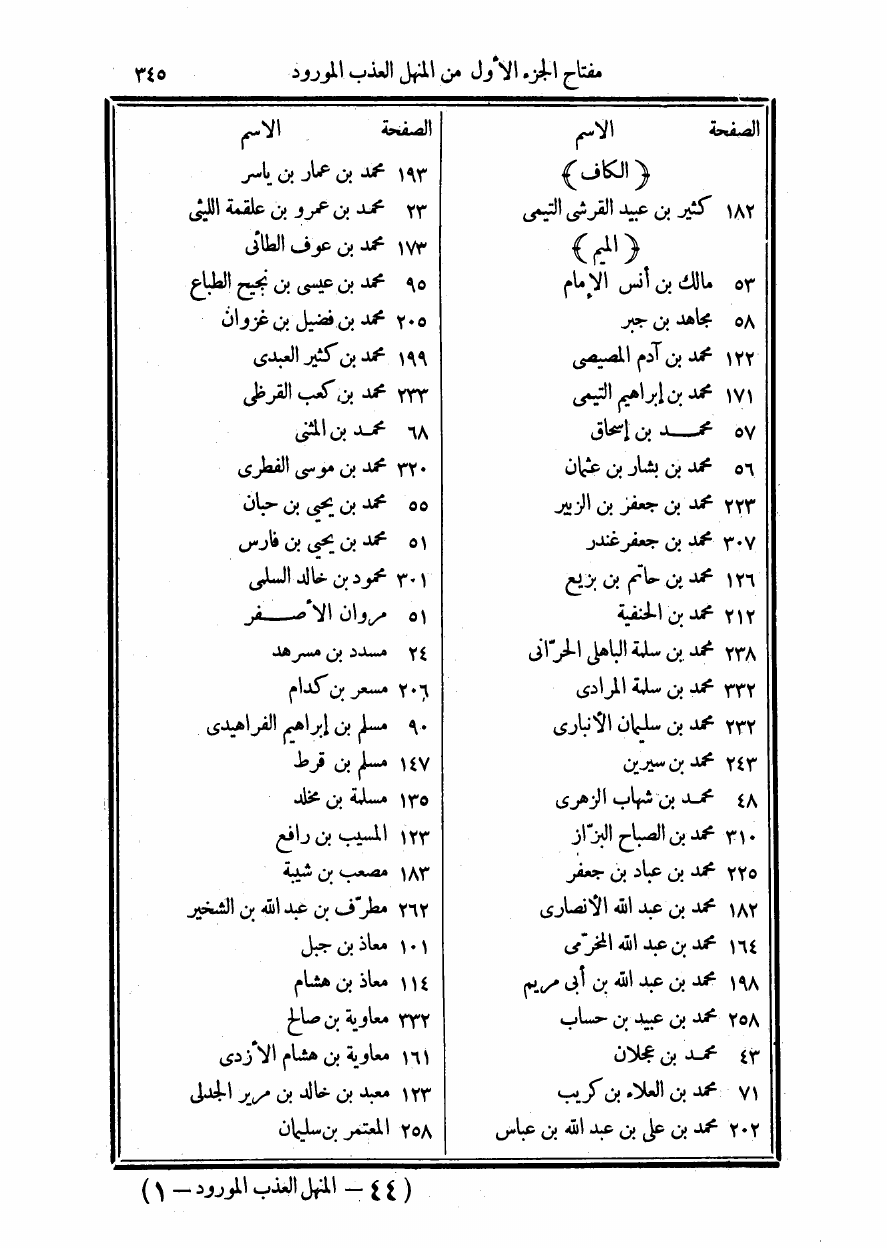 مفتاح الجزء الأول من المنهل العذب المورود ٣٤٥
الصفحة الاسم
﴿الكاف﴾
١٨٢ كثير بن عبيد القرشى التيمى
﴿الميم﴾
٥٣ مالك بن أنس الإمام
٥٨ مجاهد بن جبر
١٢٢ محمد بن آدم المصيصى
١٧١ محمد بن إبراهيم التيمى
٥٧ محمـــد بن إسحاق
٥٦ محمد بن بشار بن عثمان
٢٢٣ محمد بن جعفر بن الزبير
٣٠٧ محمد بن جعفر غندر
١٢٦ محمد بن حاتم بن بزيع
٢١٢ محمد بن الحنفية
٢٣٨ محمد بن سلمة الباهلى الحرّانى
٣٣٢ محمد بن سلمة المرادى
٢٣٢ محمد بن سليمان الأنبارى
٢٤٣ محمد بن سيرين
٤٨ محمد بن شهاب الزهرى
٣١٠ محمد بن الصباح البزّاز
٢٢٥ محمد بن عباد بن جعفر
١٨٢ محمد بن عبد الله الأنصارى
١٦٤ محمد بن عبد الله المخرّمى
١٩٨ محمد بن عبد الله بن أبى مريم
٢٥٨ محمد بن عبيد بن حساب
٤٣ محمـد بن عجلان
٧١ محمد بن العلاء بن كريب
٢٠٢ محمد بن على بن عبد الله بن عباس
الصفحة الاسم
١٩٣ محمد بن عمار بن ياسر
٢٣ محمـد بن عمرو بن علقمة الليثى
١٧٣ محمد بن عوف الطائى
٩٥ محمد بن عيسى بن نجيح الطباع
٢٠٥ محمد بن فضيل بن غزوان
١٩٩ محمد بن كثير العبدى
٢٣٣ محمد بن كعب القرظى
٦٨ محمـد بن المثنى
٣٢٠ محمد بن موسى الفطرى
٥٥ محمد بن يحيى بن حبان
٥١ محمد بن يحيى بن فارس
٣٠١ محمود بن خالد السلمى
٥١ مروان الأصـــفر
٢٤ مسدد بن مسرهد
٢٠٦ مسعر بن كدام
٩٠ مسلم بن إبراهيم الفراهيدى
١٤٧ مسلم بن قرط
١٣٥ مسلمة بن مخلد
١٢٣ المسيب بن رافع
١٨٣ مصعب بن شيبة
٢٦٢ مطرّف بن عبد الله بن الشخير
١٠١ معاذ بن جبل
١١٤ معاذ بن هشام
٣٣٢ معاوية بن صالح
١٦١ معاوية بن هشام الأزدى
١٢٣ معبد بن خالد بن مرير الجدلى
٢٥٨ المعتمر بن سليمان
(٤٤ – المنهل العذب المورود – ١)